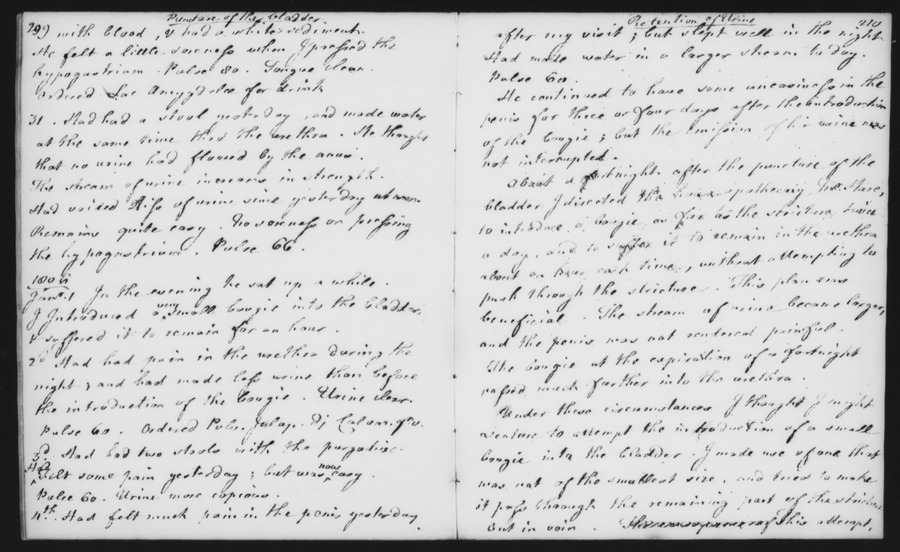 299 Puncture of the bladder
with blood, & had a white sediment.
He felt a little soreness when I pressed the
hypogastrium. Pulse 80. Tongue clean.
Ordered Lac Amygdalae for drink
31. Had had a stool yesterday, and made water
at the same time thro the urethra. He thought
that no urine had flowed by the anus.
The stream of urine increases in strength.
Had voided of urine since yesterday
Remains quite easy. No soreness on pressing
the hypogastrium. Pulse 66.
Jan.y 1 In the evening he sat up a while.
I Introduced a very small bougie into the bladder,
& suffered it to remain for an hour.
2d Had had pain in the urethra during the
night; and had made less urine than before
the introduction of the bougie. Urine clear.
Pulse 60. Ordered Pulv. Jalap. Calom.
3d. Had had two stools with the purgative.
Felt some pain yesterday; but was now easy.
Pulse 60. Urine more copious.
4th. Had felt much pain in the penis yesterday
Retention of Urine
after my visit; but slept well in the night
Had made water in a larger stream to day.
Pulse 60.
He continued to have some uneasiness in the
penis for three or four days after the introduction
of the bougie; but the emission of his urine was
not interrupted.
About a fortnight after the puncture of the
bladder I directed the apothecary,
to introduce a bougie, as far as the stricture, twice
a day, and to suffer it to remain in the urethra
about an hour each time, without attempting to
push through the stricture. This plan was
beneficial. The stream of urine became larger,
and the penis was not rendered painful.
The bougie at the expiration of a fortnight
passed much farther into the urethra.
Under these circumstances I thought I might
venture to attempt the introduction of a small
bougie into the bladder. I made use of one that
was not of the smallest size, and tried to make
it pass through the remaining part of the stricture
but in vain. This attempt,